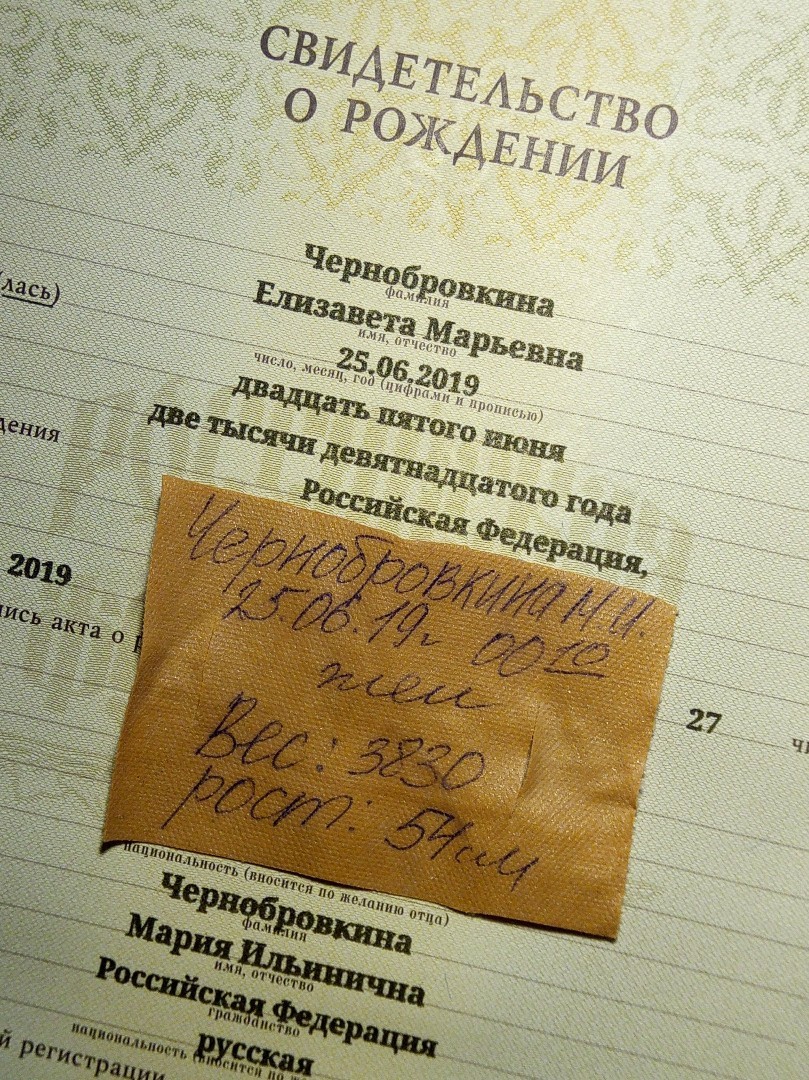 СВИДЕТЕЛЬСТВО
О РОЖДЕНИИ
Чернобровкина
фамилия
лась)
Елизавета Марьевна
имя, отчество
25.06.2019
число, месяц, год (цифрами и прописью)
двадцать пятого июня
две тысячи девятнадцатого года
Российская Федерация,
Чернобровкина М И.
25.06.19г 00 10
2019
жен
27
Вес: 3830
рост: 54см
национальность (вносится по желанию отца)
Чернобровкина
фамилия
Мария Ильинична
имя, отчество
Российская Федерация
гражданство
русская
национальность
регистрации